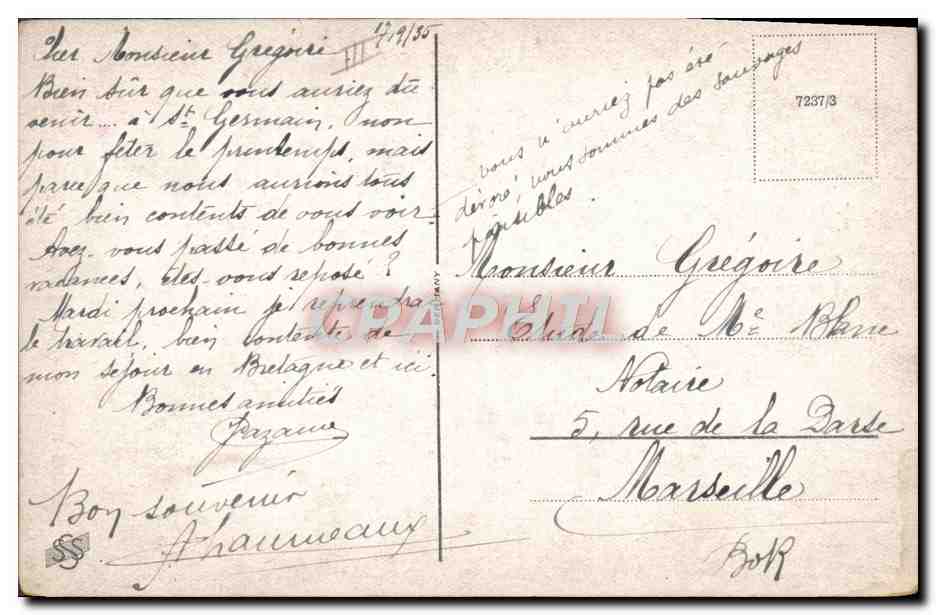 17/9/35
Cher Monsieur Grégoire
Bien sûr que vous auriez dû
venir.... à St. Germain, non
pour fêter le printemps, mais
parce que nous aurions tous
été bien contents de vous voir.
Avez-vous passé de bonnes
vacances, êtes-vous reposé ?
Mardi prochain je reprendrai
le travail, bien contente de
mon séjour en Bretagne et ici.
Bonnes amitiés
Bon souvenir
SSS
vous n'auriez pas été
dévoré, nous sommes des sauvages
paisibles.
7237/3
GERMANY
CPAPHIL
Monsieur Grégoire
Etude de Me Blanc
Notaire
5, rue de la Darse
Marseille
BdR